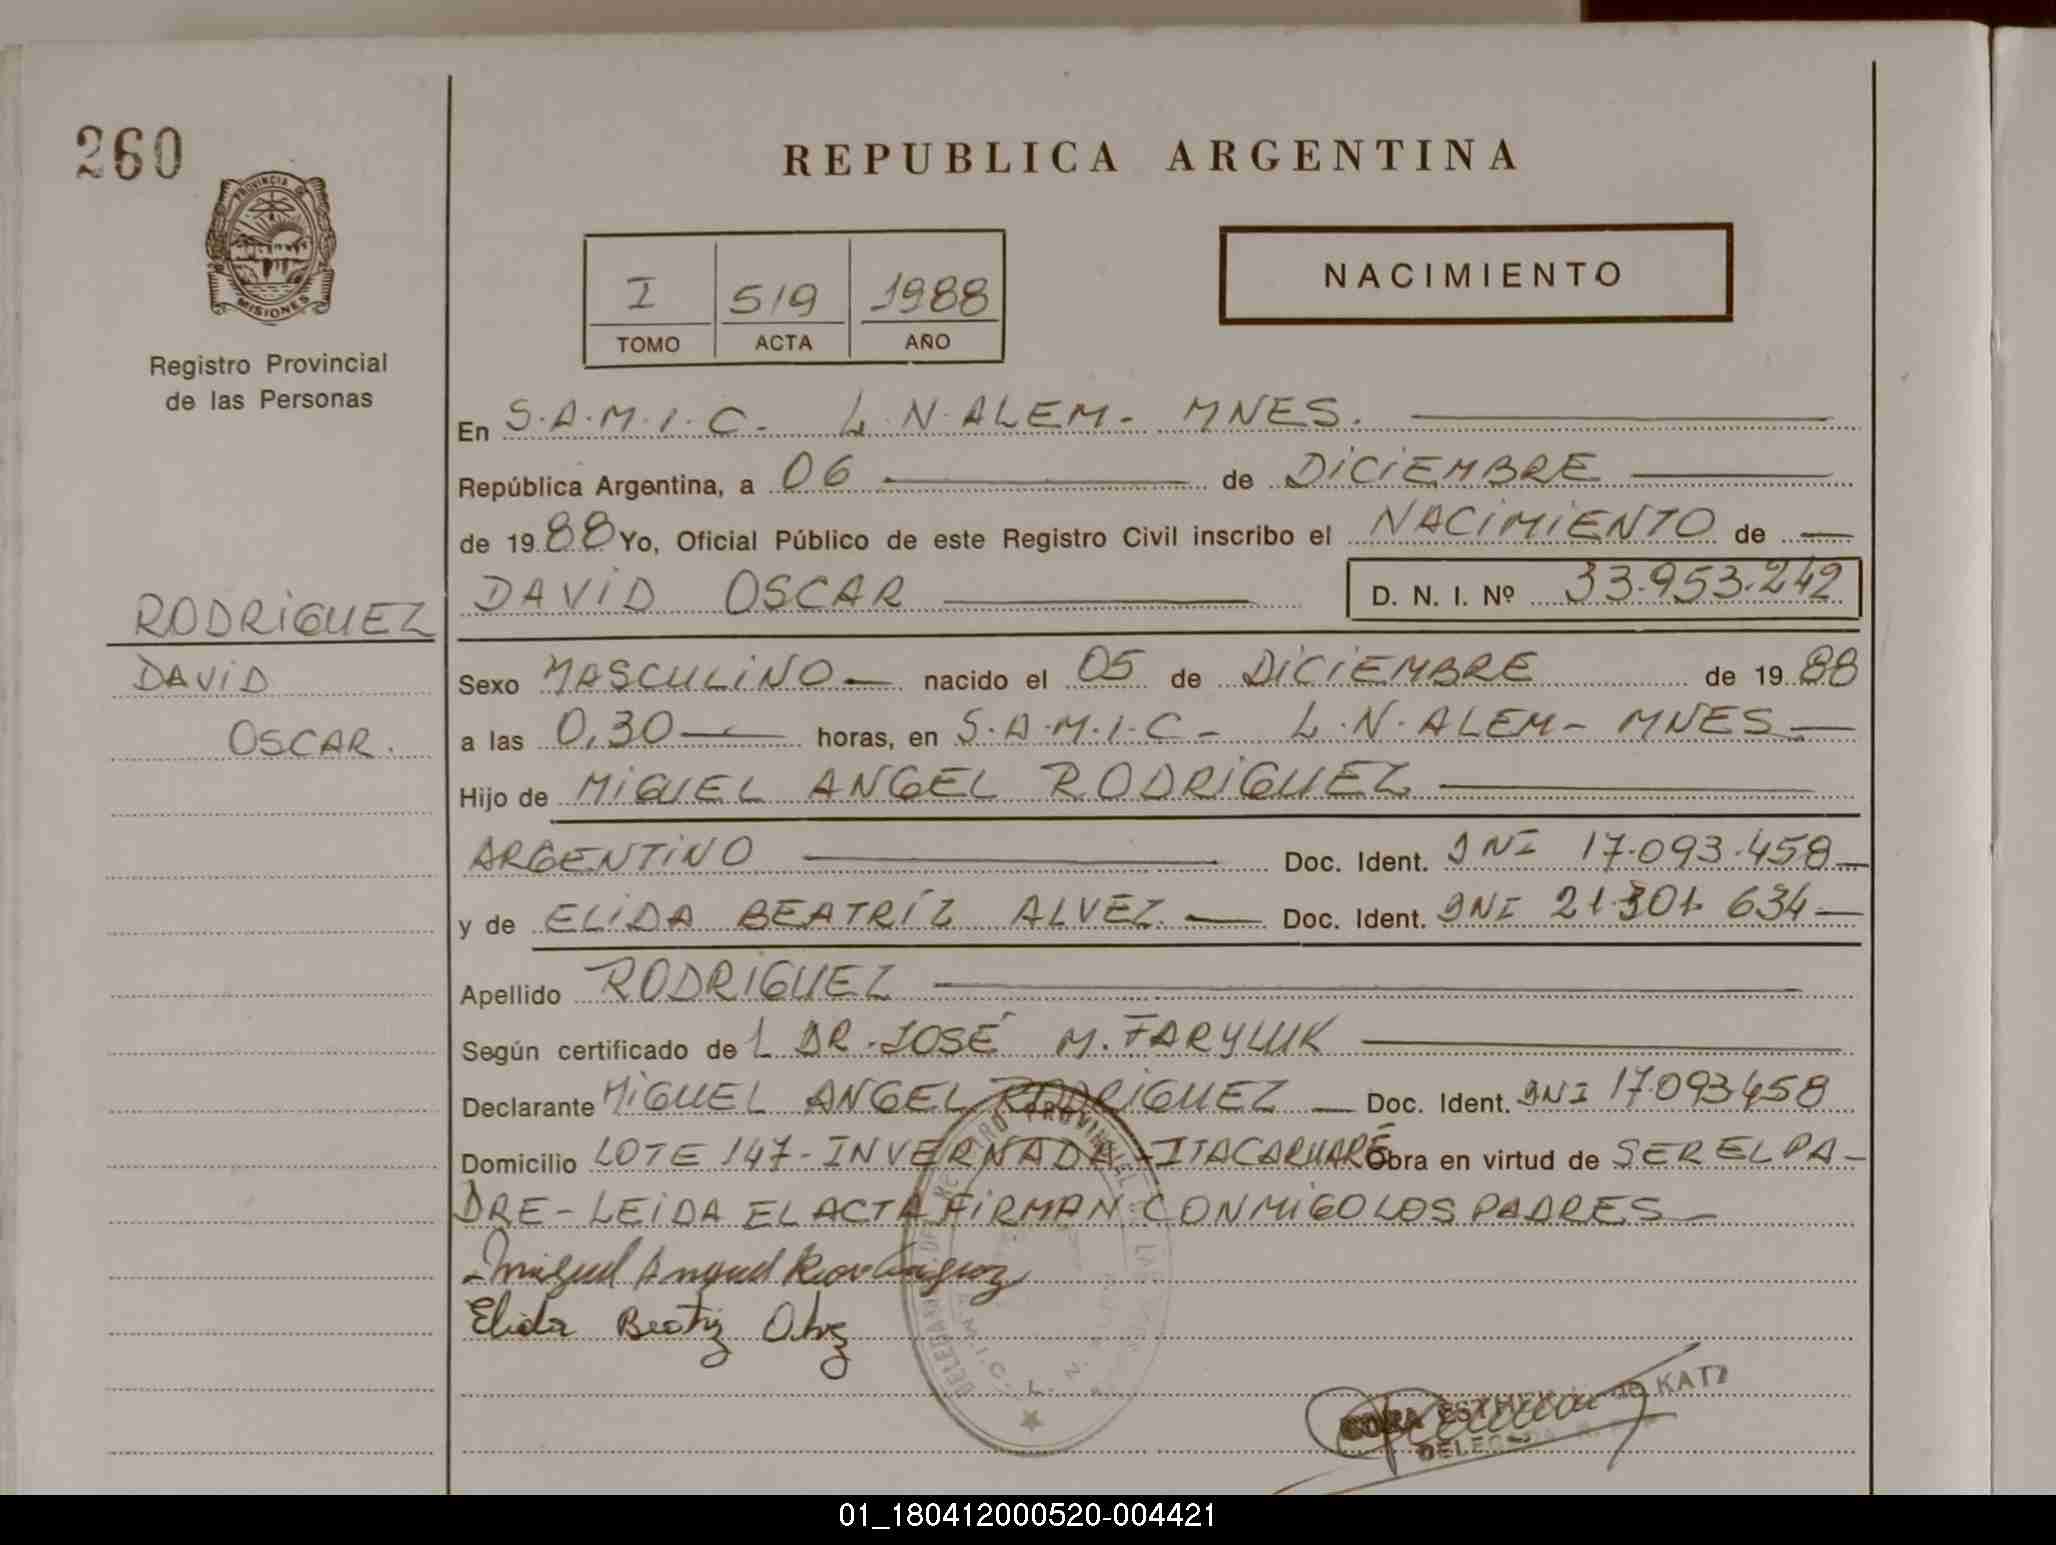 260
REPUBLICA ARGENTINA
PROVINCIA DE
MISIONES
Registro Provincial
de las Personas
I 519 1988
TOMO ACTA AÑO
NACIMIENTO
En S.A.M.I.C. L.N.ALEM- MNES.
República Argentina, a 06 de DICIEMBRE
de 1988 Yo, Oficial Público de este Registro Civil inscribo el NACIMIENTO de
DAVID OSCAR D. N. I. Nº 33.953.242
RODRIGUEZ
DAVID
OSCAR.
Sexo MASCULINO nacido el 05 de DICIEMBRE de 1988
a las 0,30 horas, en S.A.M.I.C- L.N.ALEM- MNES
Hijo de MIGUEL ANGEL RODRIGUEZ
ARGENTINO Doc. Ident. DNI 17.093.458
y de ELIDA BEATRÍZ ALVEZ Doc. Ident. DNI 21.301.634
Apellido RODRIGUEZ
Según certificado del DR. JOSÉ M. FARYLUK
Declarante MIGUEL ANGEL RODRIGUEZ Doc. Ident. DNI 17.093458
Domicilio LOTE 147-INVERNADA-ITACARUARÉ Obra en virtud de SER EL PA-
DRE-LEIDA EL ACTA FIRMAN CONMIGO LOS PADRES
Miguel Angel Rodriguez
Elida Beatriz
DE KATZ
DELEGADA
01_180412000520-004421